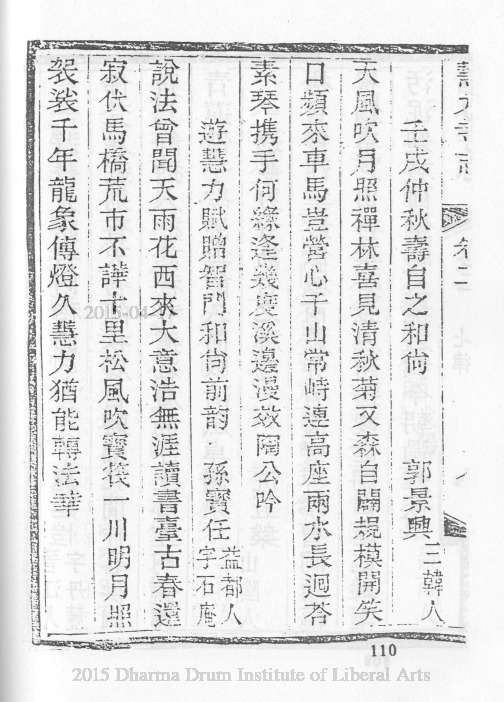 慧力寺志 卷二 七律
壬戌仲秋壽自之和尙 郭景興 三韓人
天風吹月照禪林喜見清秋菊又森自闢規模開笑
口頻來車馬豈營心千山常峙連高座兩水長迴荅
素琴携手何緣逢幾度溪邊漫效陶公吟
遊慧力賦贈智門和尙前韵 孫寶任 益都人字石庵
說法曾聞天雨花西來大意浩無涯讀書臺古春還
寂伏馬橋荒市不譁十里松風吹寶筏一川明月照
袈裟千年龍象傳燈久慧力猶能轉法華
110
2015 Dharma Drum Institute of Liberal Arts